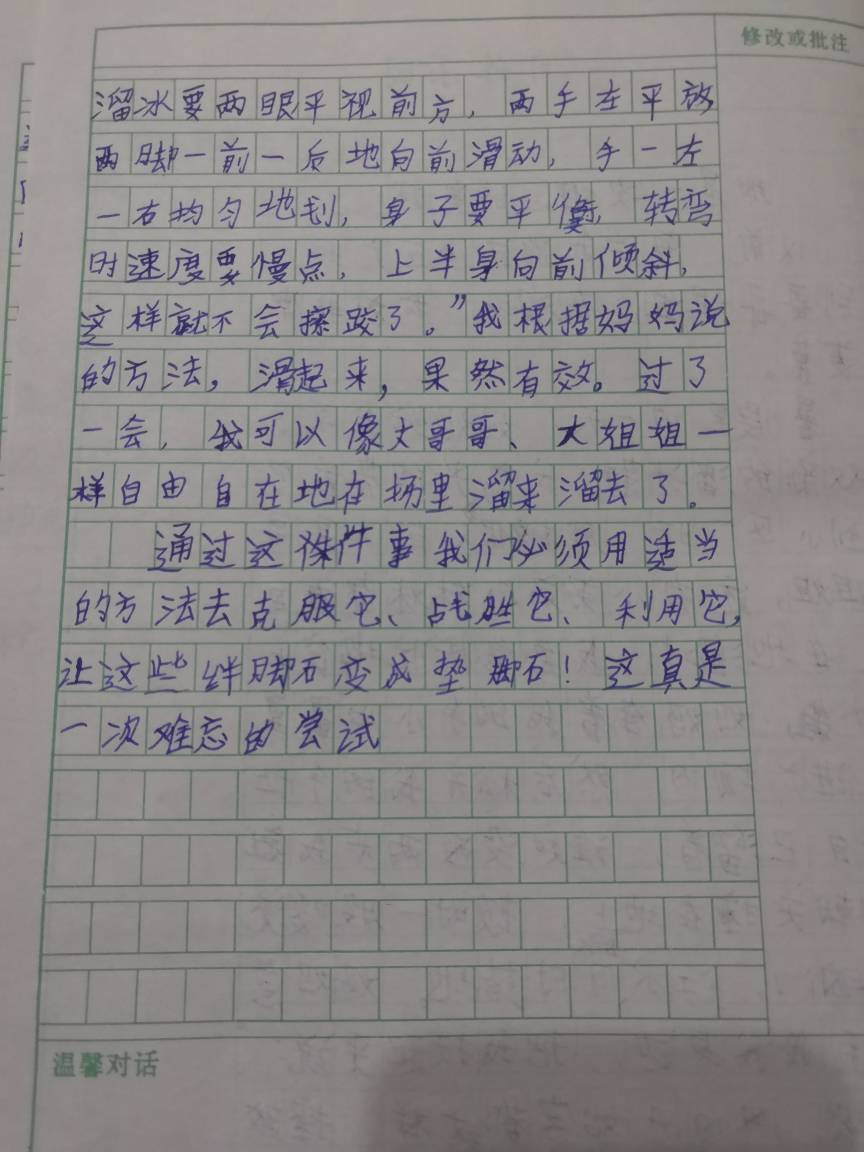 修改或批注
溜冰要两眼平视前方，两手左平放
两脚一前一后地向前滑动，手一左
一右均匀地划，身子要平衡，转弯
时速度要慢点，上半身向前倾斜，
这样就不会摔跤了。”我根据妈妈说
的方法，滑起来，果然有效。过了
一会，我可以像大哥哥、大姐姐一
样自由自在地在场里溜来溜去了。
通过这件事我们必须用适当
的方法去克服它、战胜它、利用它，
让这些绊脚石变成垫脚石！这真是
一次难忘的尝试
温馨对话